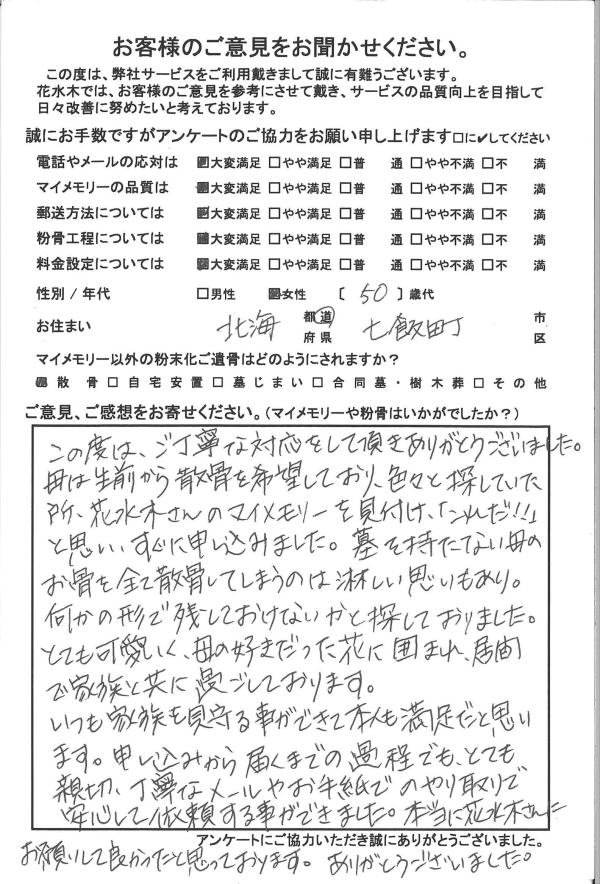 お客様のご意見をお聞かせください。
この度は、弊社サービスをご利用戴きまして誠に有難うございます。
花水木では、お客様のご意見を参考にさせて戴き、サービスの品質向上を目指して
日々改善に努めたいと考えております。
誠にお手数ですがアンケートのご協力をお願い申し上げます□に✔してください
電話やメールの応対は ☑大変満足 □やや満足 □普 通 □やや不満 □不 満
マイメモリーの品質は ☑大変満足 □やや満足 □普 通 □やや不満 □不 満
郵送方法については ☑大変満足 □やや満足 □普 通 □やや不満 □不 満
粉骨工程については ☑大変満足 □やや満足 □普 通 □やや不満 □不 満
料金設定については ☑大変満足 □やや満足 □普 通 □やや不満 □不 満
性別 / 年代 □男性 ☑女性 〔 50 〕歳代
お住まい 北海 都道府県 七飯町 市区
マイメモリー以外の粉末化ご遺骨はどのようにされますか?
☑散 骨 □自宅安置 □墓じまい □合同墓・樹木葬 □その他
ご意見、ご感想をお寄せください。(マイメモリーや粉骨はいかがでしたか?)
この度は、ご丁寧な対応をして頂きありがとうございました。
母は生前から散骨を希望しており、色々と探していた
所、花水木さんのマイメモリーを見付け、「これだ!!」
と思い、すぐに申し込みました。墓を持たてない母の
お骨を全て散骨してしまうのは淋しい思いもあり。
何かの形で残しておけないかと探しておりました。
とても可愛いく、母の好きだった花に囲まれ、居間
で家族と共に過ごしております。
いつも家族を見守る事ができて本人も満足だと思い
ます。申し込みから届くまでの過程でも、とても
親切、丁寧なメールやお手紙でのやり取りで
安心して依頼する事ができました。本当に花水木さんに
アンケートにご協力いただき誠にありがとうございました。
お願いして良かったと思っております。ありがとうございました。